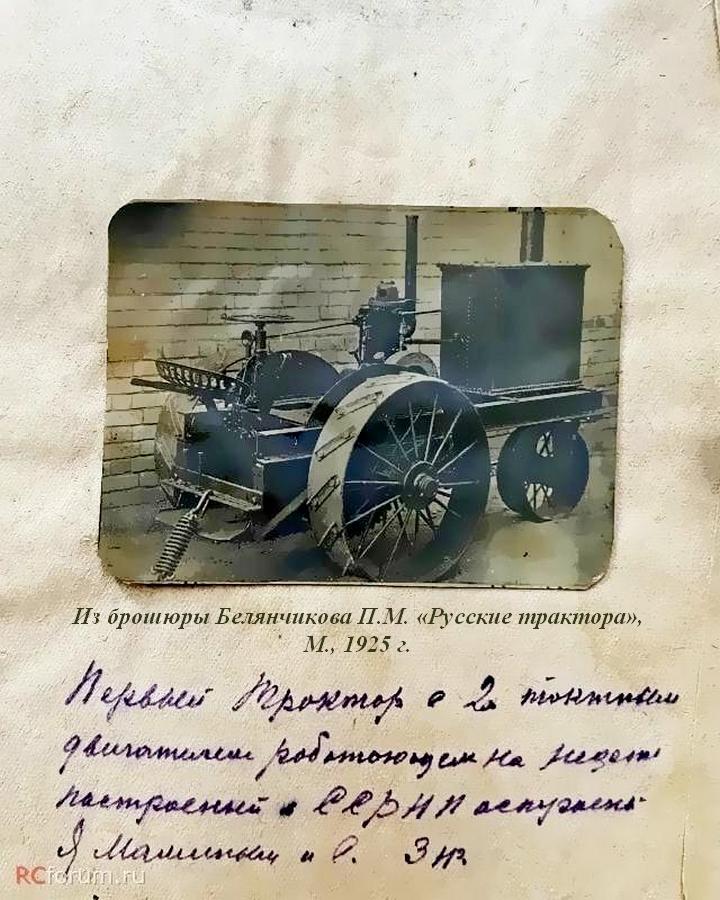 Из брошюры Белянчикова П.М. «Русские трактора»,
М., 1925 г.
Первый Трактор с 2х тактным
двигателем работающем на нефти
построеный в СССР
Я Маминым и
RCforum.ru